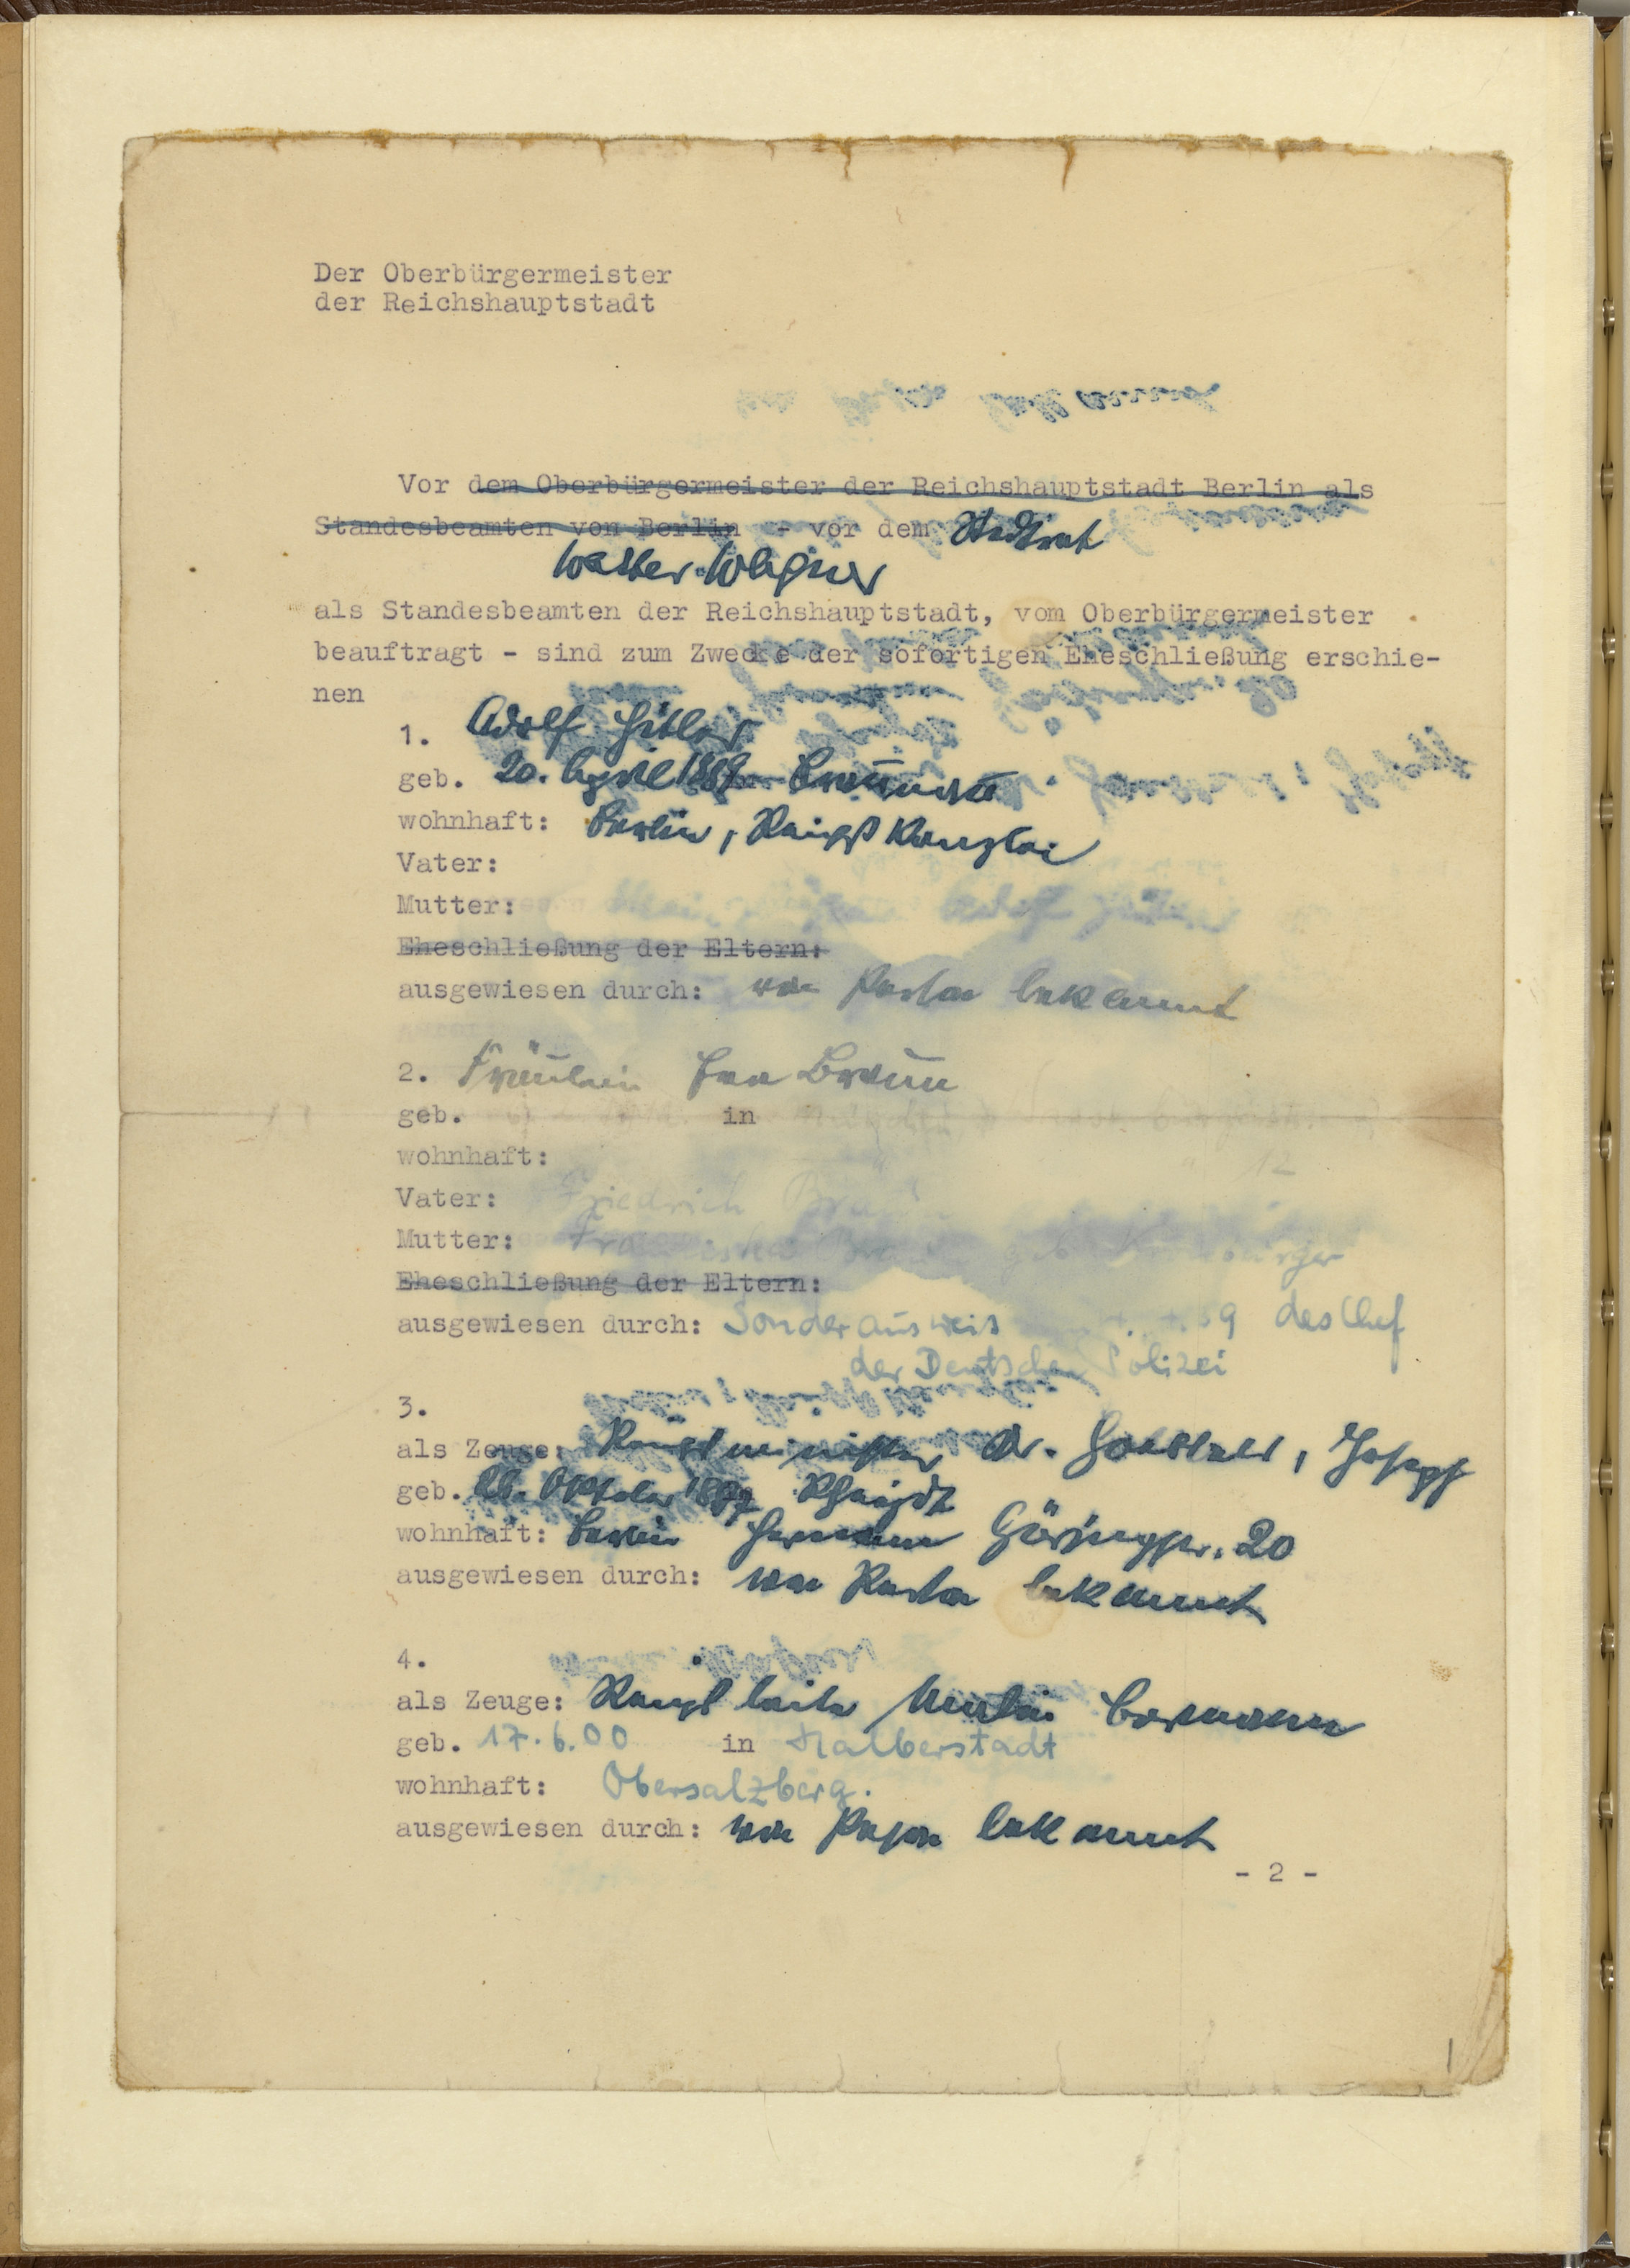 Der Oberbürgermeister
der Reichshauptstadt
Vor dem Oberbürgermeister der Reichshauptstadt Berlin als
Standesbeamten von Berlin - vor dem Stadtrat
Walter Wagner
als Standesbeamten der Reichshauptstadt, vom Oberbürgermeister
beauftragt - sind zum Zwecke der sofortigen Eheschließung erschie-
nen
1. Adolf Hitler
geb. 20. April 1889 Braunau
wohnhaft: Berlin, Reichskanzlei
Vater:
Mutter:
Eheschließung der Eltern:
ausgewiesen durch: von Person bekannt
2. Fräulein Eva Braun
geb. in
wohnhaft: 12
Vater: Friedrich Braun
Mutter: Franziska Braun geb.
Eheschließung der Eltern:
ausgewiesen durch: Sonderausweis 39 des Chef
der Deutschen Polizei
3.
als Zeuge: Reichsminister Dr. Goebbels, Joseph
geb. 26. Oktober 1897 Rheydt
wohnhaft: Berlin Hermann Göringstr. 20
ausgewiesen durch: von Person bekannt
4.
als Zeuge: Reichsleiter Martin Bormann
geb. 17.6.00 in Halberstadt
wohnhaft: Obersalzberg.
ausgewiesen durch: von Person bekannt
- 2 -